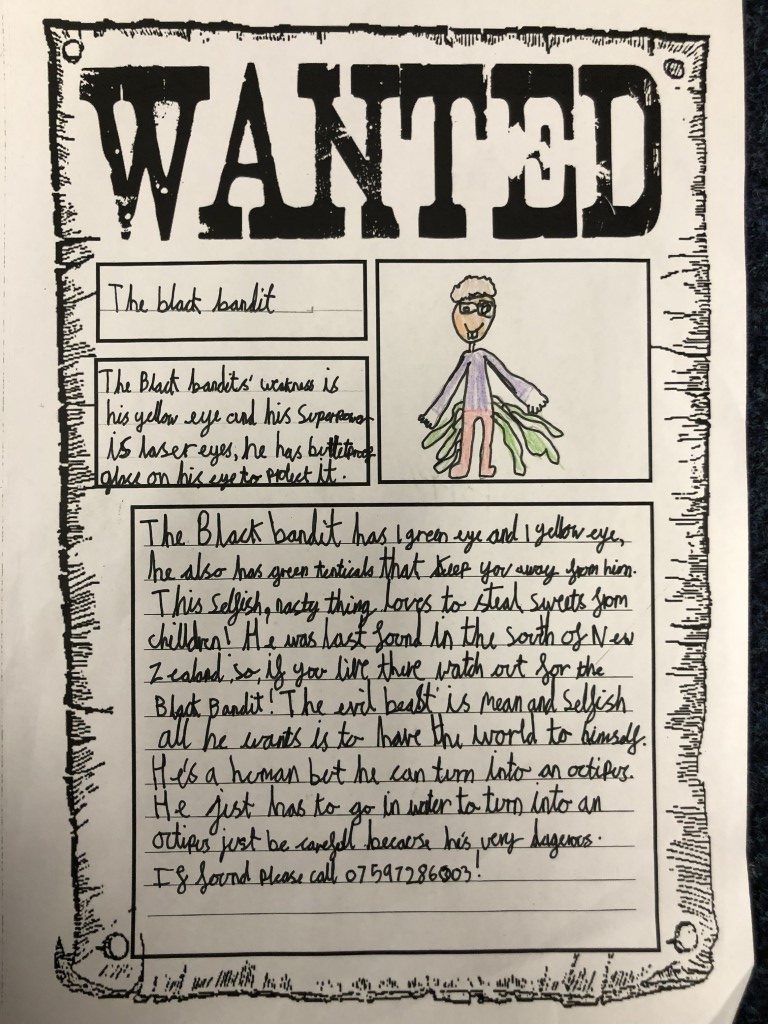 WANTED
The black bandit
The Black bandits' weakness is
his yellow eye and his Superpower
is laser eyes, he has bulletproof
glass on his eye to protect it.
The Black bandit has 1 green eye and 1 yellow eye,
he also has green tenticals that keep you away from him.
This selfish, nasty thing loves to steal sweets from
chilldren! He was last found in the South of New
Zealand, so, if you live there watch out for the
Black Bandit! The evil beast is mean and selfish
all he wants is to have the world to himself.
He's a human but he can turn into an octipus.
He just has to go in water to turn into an
octipus just be carefull because he's very dagerous.
If found please call 07597286003!